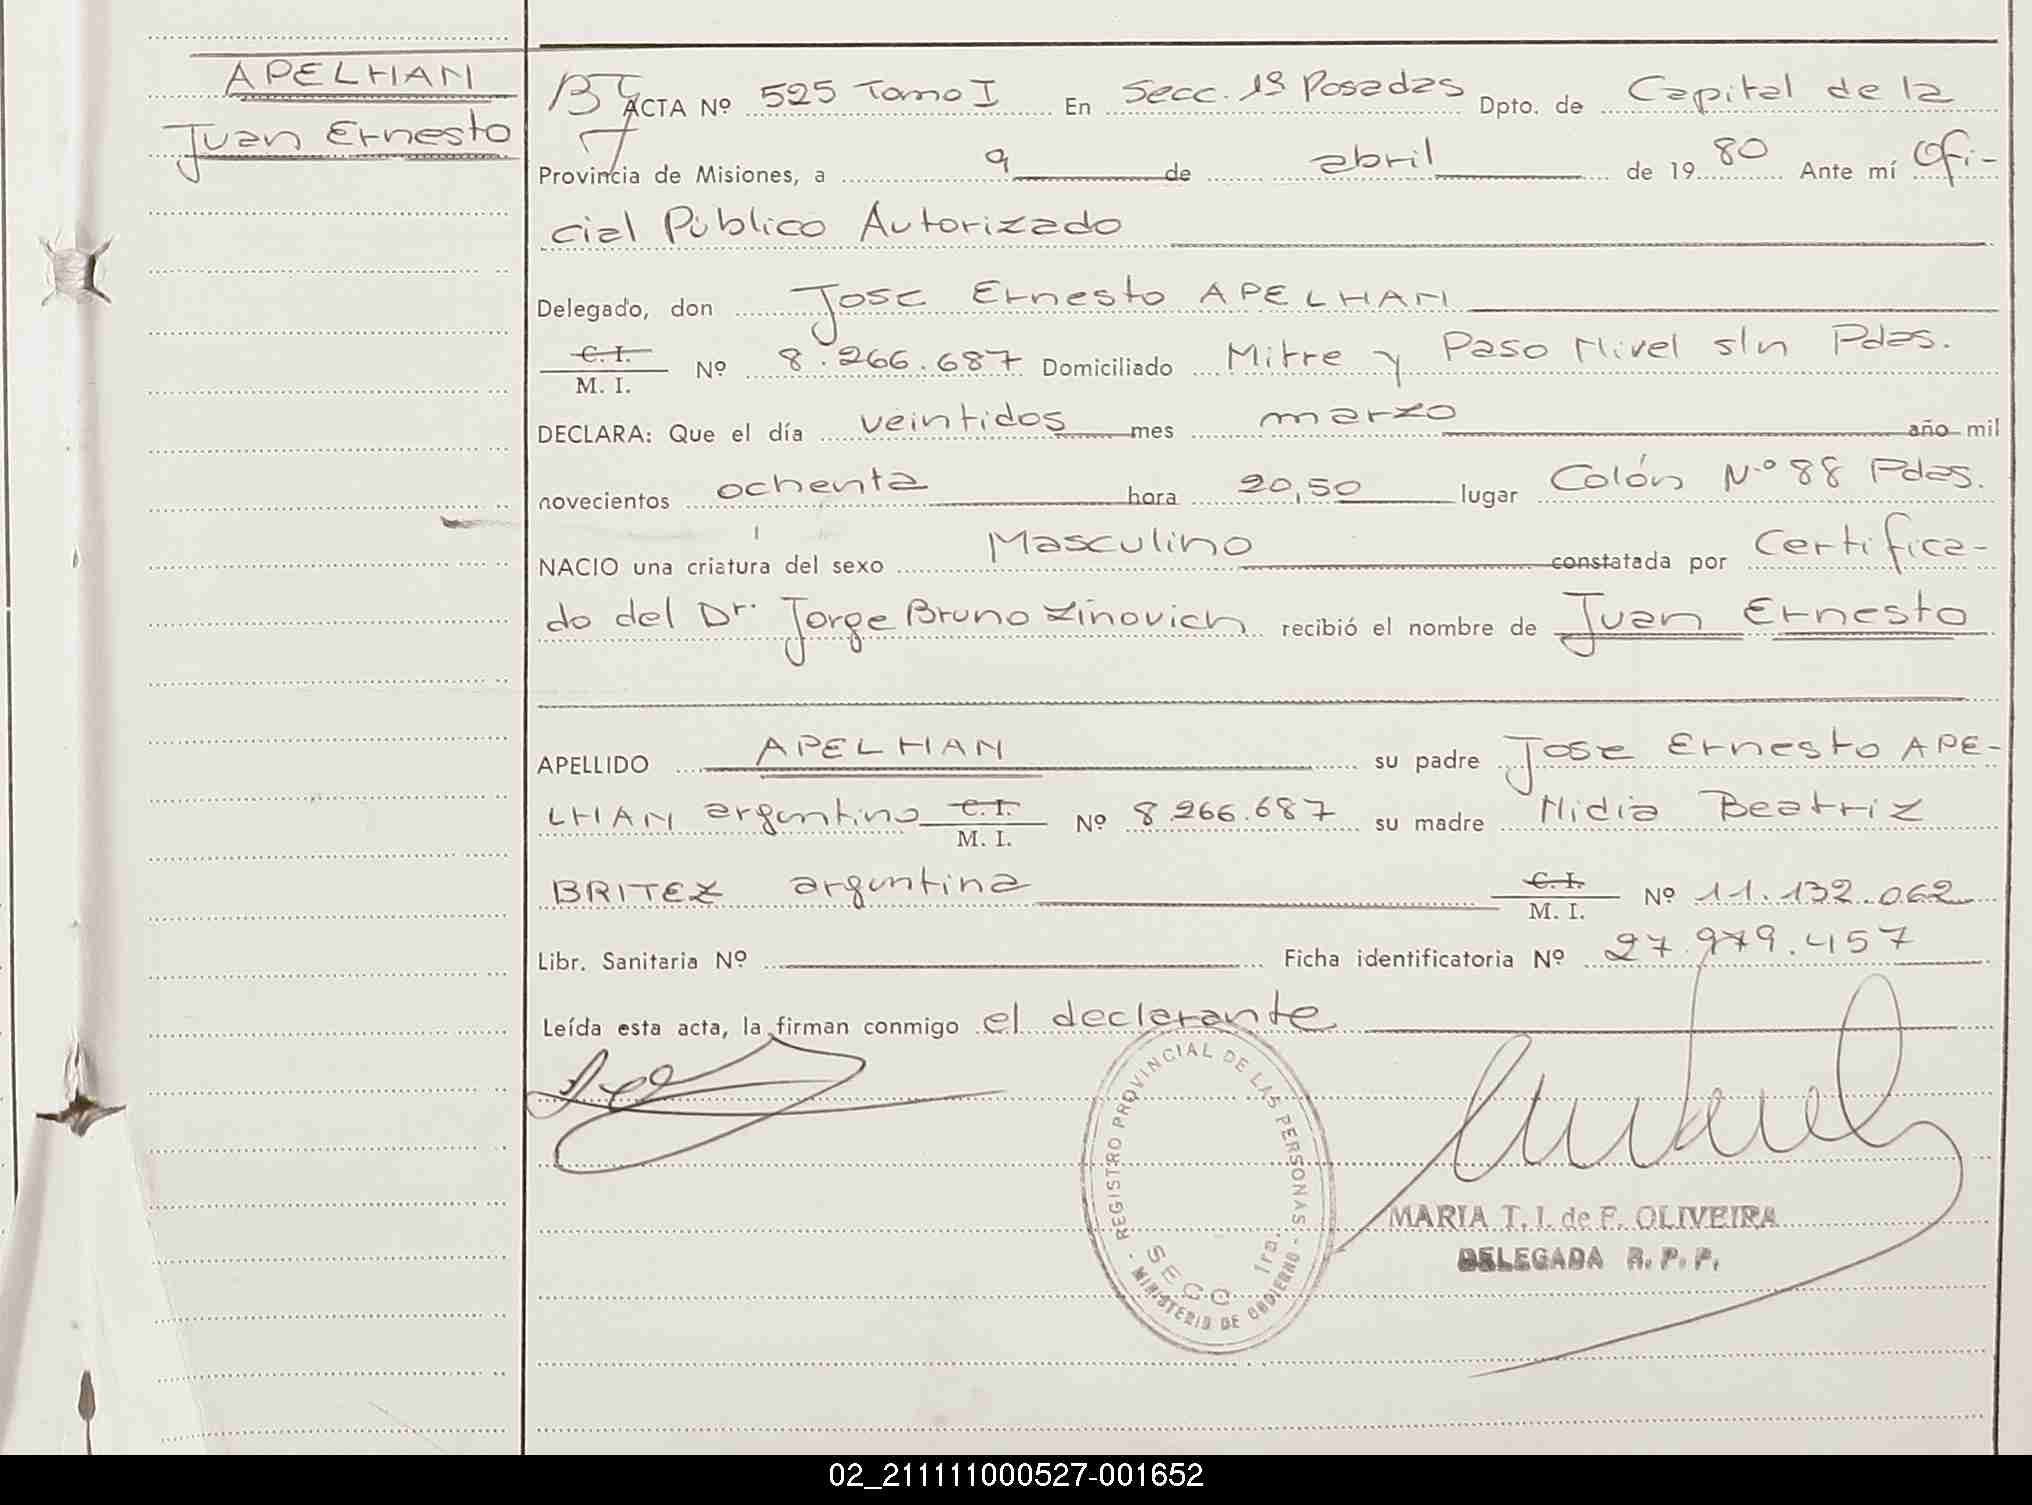 APELHAN
Juan Ernesto
ACTA Nº 525 Tomo I En Secc. 1ª Posadas Dpto. de Capital de la
Provincia de Misiones, a 9 de abril de 1980 Ante mí Ofi-
cial Público Autorizado
Delegado, don Jose Ernesto APELHAN
C. I.
M. I. Nº 8.266.687 Domiciliado Mitre y Paso Nivel s/n Pdas.
DECLARA: Que el día veintidos mes marzo año mil
novecientos ochenta hora 20,50 lugar Colón N.º 88 Pdas.
NACIO una criatura del sexo Masculino constatada por Certifica-
do del Dr. Jorge Bruno Zinovich recibió el nombre de Juan Ernesto
APELLIDO APELHAN su padre Jose Ernesto APE-
LHAN argentino C. I. / M. I. Nº 8.266.687 su madre Nidia Beatriz
BRITEZ argentina C. I. / M. I. Nº 11.132.062
Libr. Sanitaria Nº Ficha identificatoria Nº 27.979.457
Leída esta acta, la firman conmigo el declarante
REGISTRO PROVINCIAL DE LAS PERSONAS
SECC 1ra.
MINISTERIO DE GOBIERNO
MARIA T. I. de F. OLIVEIRA
DELEGADA R. P. P.
02_211111000527-001652